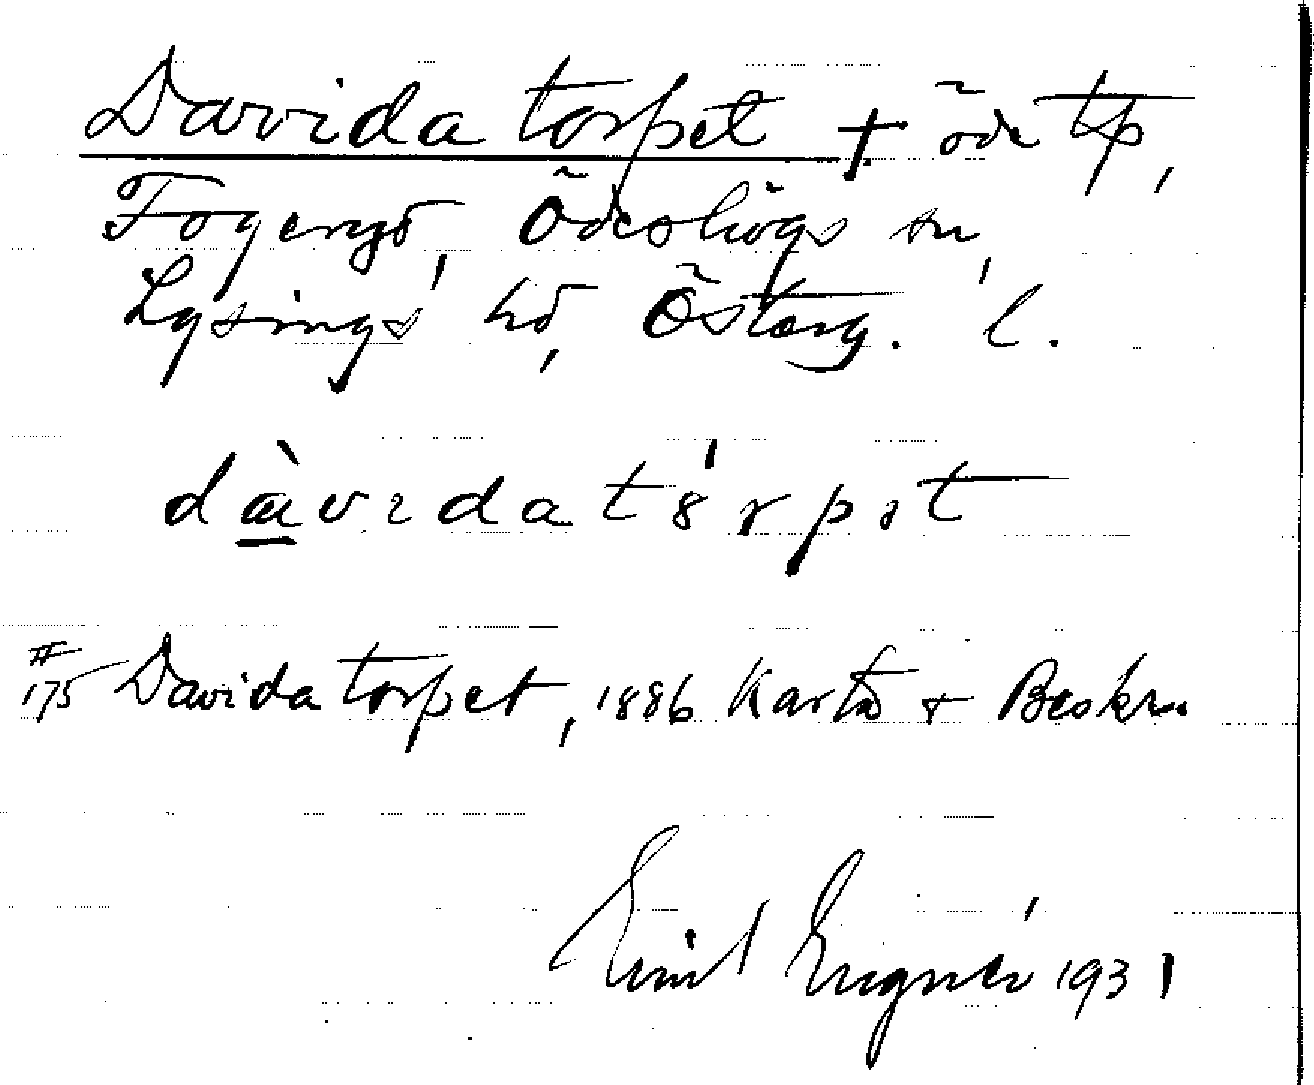 Davidatorpet + öde tp,
Fogeryd, Ödeshögs sn,
Lysings hd, Österg. l.
dàvıdatórpət
II
175 Davidatorpet, 1886 Karta + Beskrn
Emil Engnér 1931